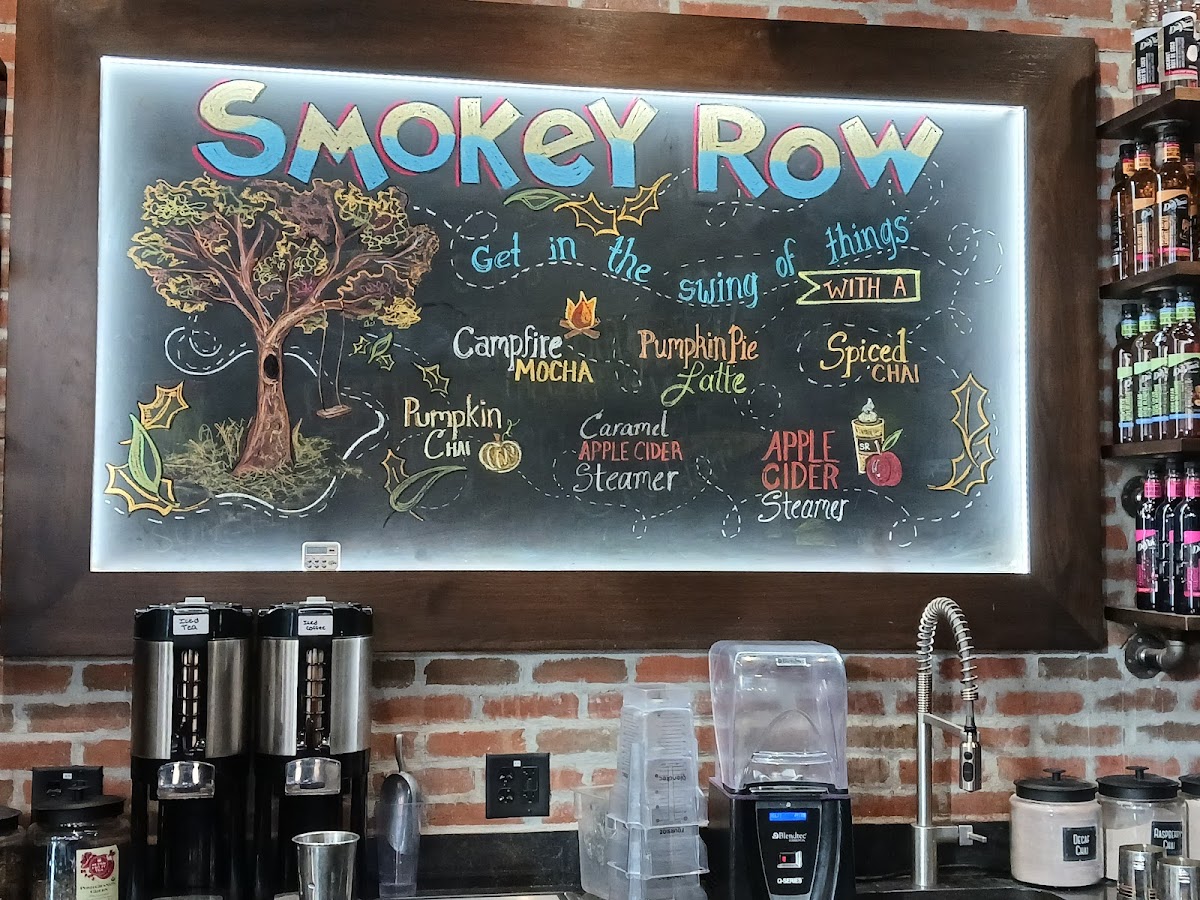 SMOKEY ROW
Get in the swing of things
WITH A
Campfire
MOCHA
Pumpkin Pie
Latte
Spiced
CHAI
Pumpkin
CHAI
Caramel
APPLE CIDER
Steamer
APPLE
CIDER
Steamer
SR
ICED
TEA
ICED
COFFEE
Blendtec
Q-SERIES
DECAF
CHAI
RASPBERRY
CHAI